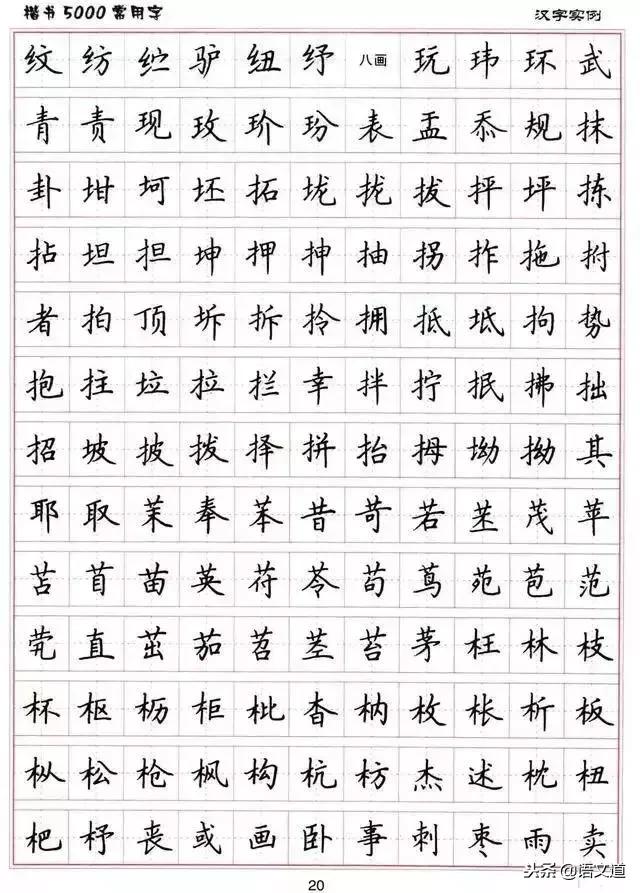 楷书5000常用字 汉字实例
纹 纺 纻 驴 纽 纾 八画 玩 玮 环 武
青 责 现 玫 玠 玢 表 盂 忝 规 抹
卦 坩 坷 坯 拓 垅 拢 拔 抨 坪 拣
拈 坦 担 坤 押 抻 抽 拐 拃 拖 拊
者 拍 顶 坼 拆 拎 拥 抵 坻 拘 势
抱 拄 垃 拉 拦 幸 拌 拧 抿 拂 拙
招 坡 披 拨 择 拚 抬 拇 坳 拗 其
耶 取 茉 奉 苯 昔 苛 若 茂 苹
苫 苜 苗 英 苻 苓 苟 茑 苑 苞 范
茕 直 茁 茄 苕 茎 苔 茅 枉 林 枝
杯 枢 枥 柜 枇 杳 枘 枚 枨 析 板
枞 松 枪 枫 构 杭 枋 杰 述 枕 杻
杷 杼 丧 或 画 卧 事 刺 枣 雨 卖
头条@语文道
20